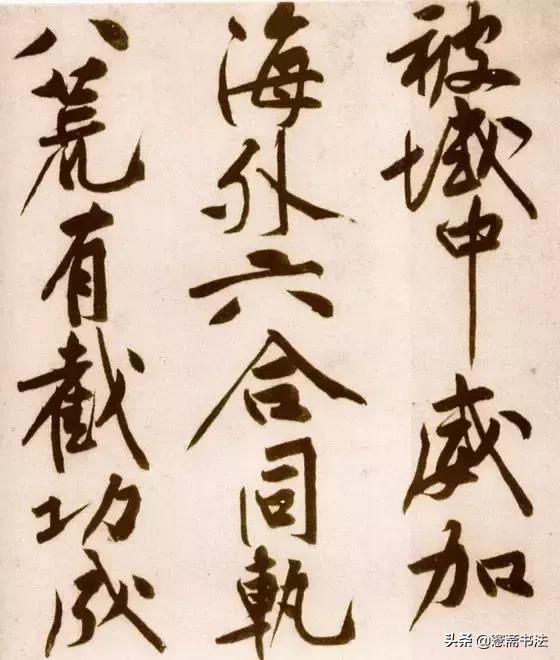 被域中威加
海外六合同軌
八荒有截功成
头条@慤斋书法